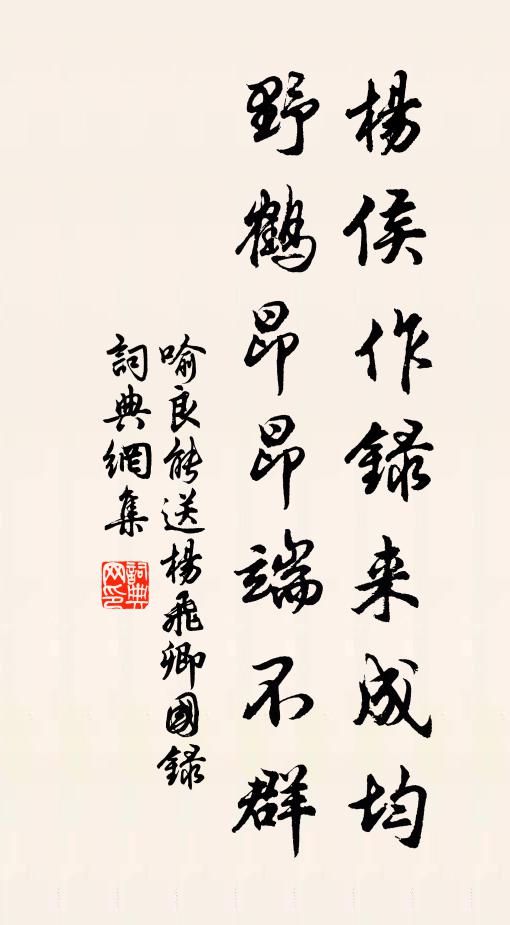 楊侯作録来成均
野鶴昂昂端不群
喻良能送楊飛卿國録
詞典網集
詞典
网印